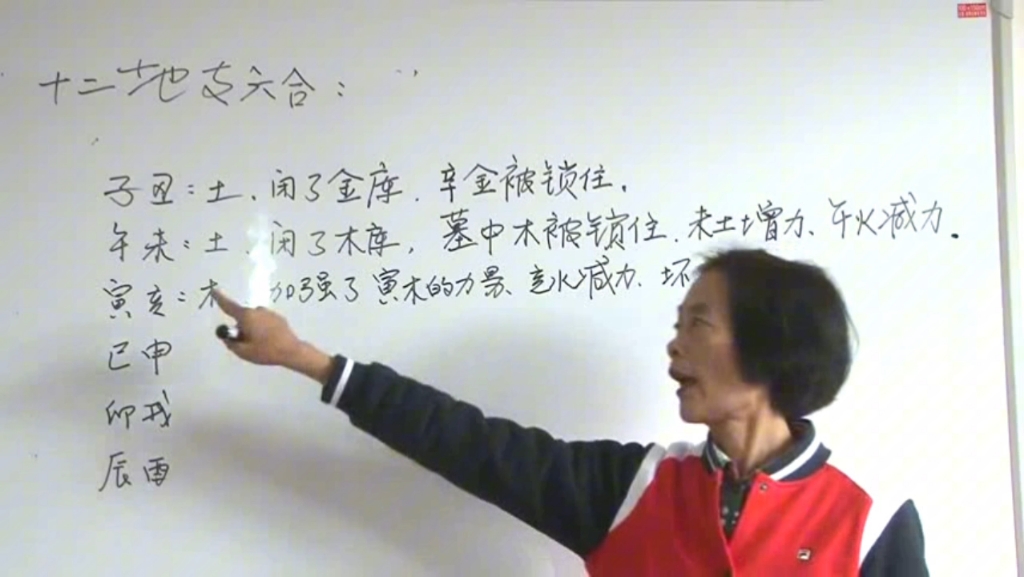 十二地支六合：
子丑：土、闭了金库．辛金被锁住．
午未：土、闭了木库，墓中木被锁住．未土增力、午火减力．
寅亥：木、加强了寅木的力量、亥水减力．坏
巳申
卯戌
辰酉